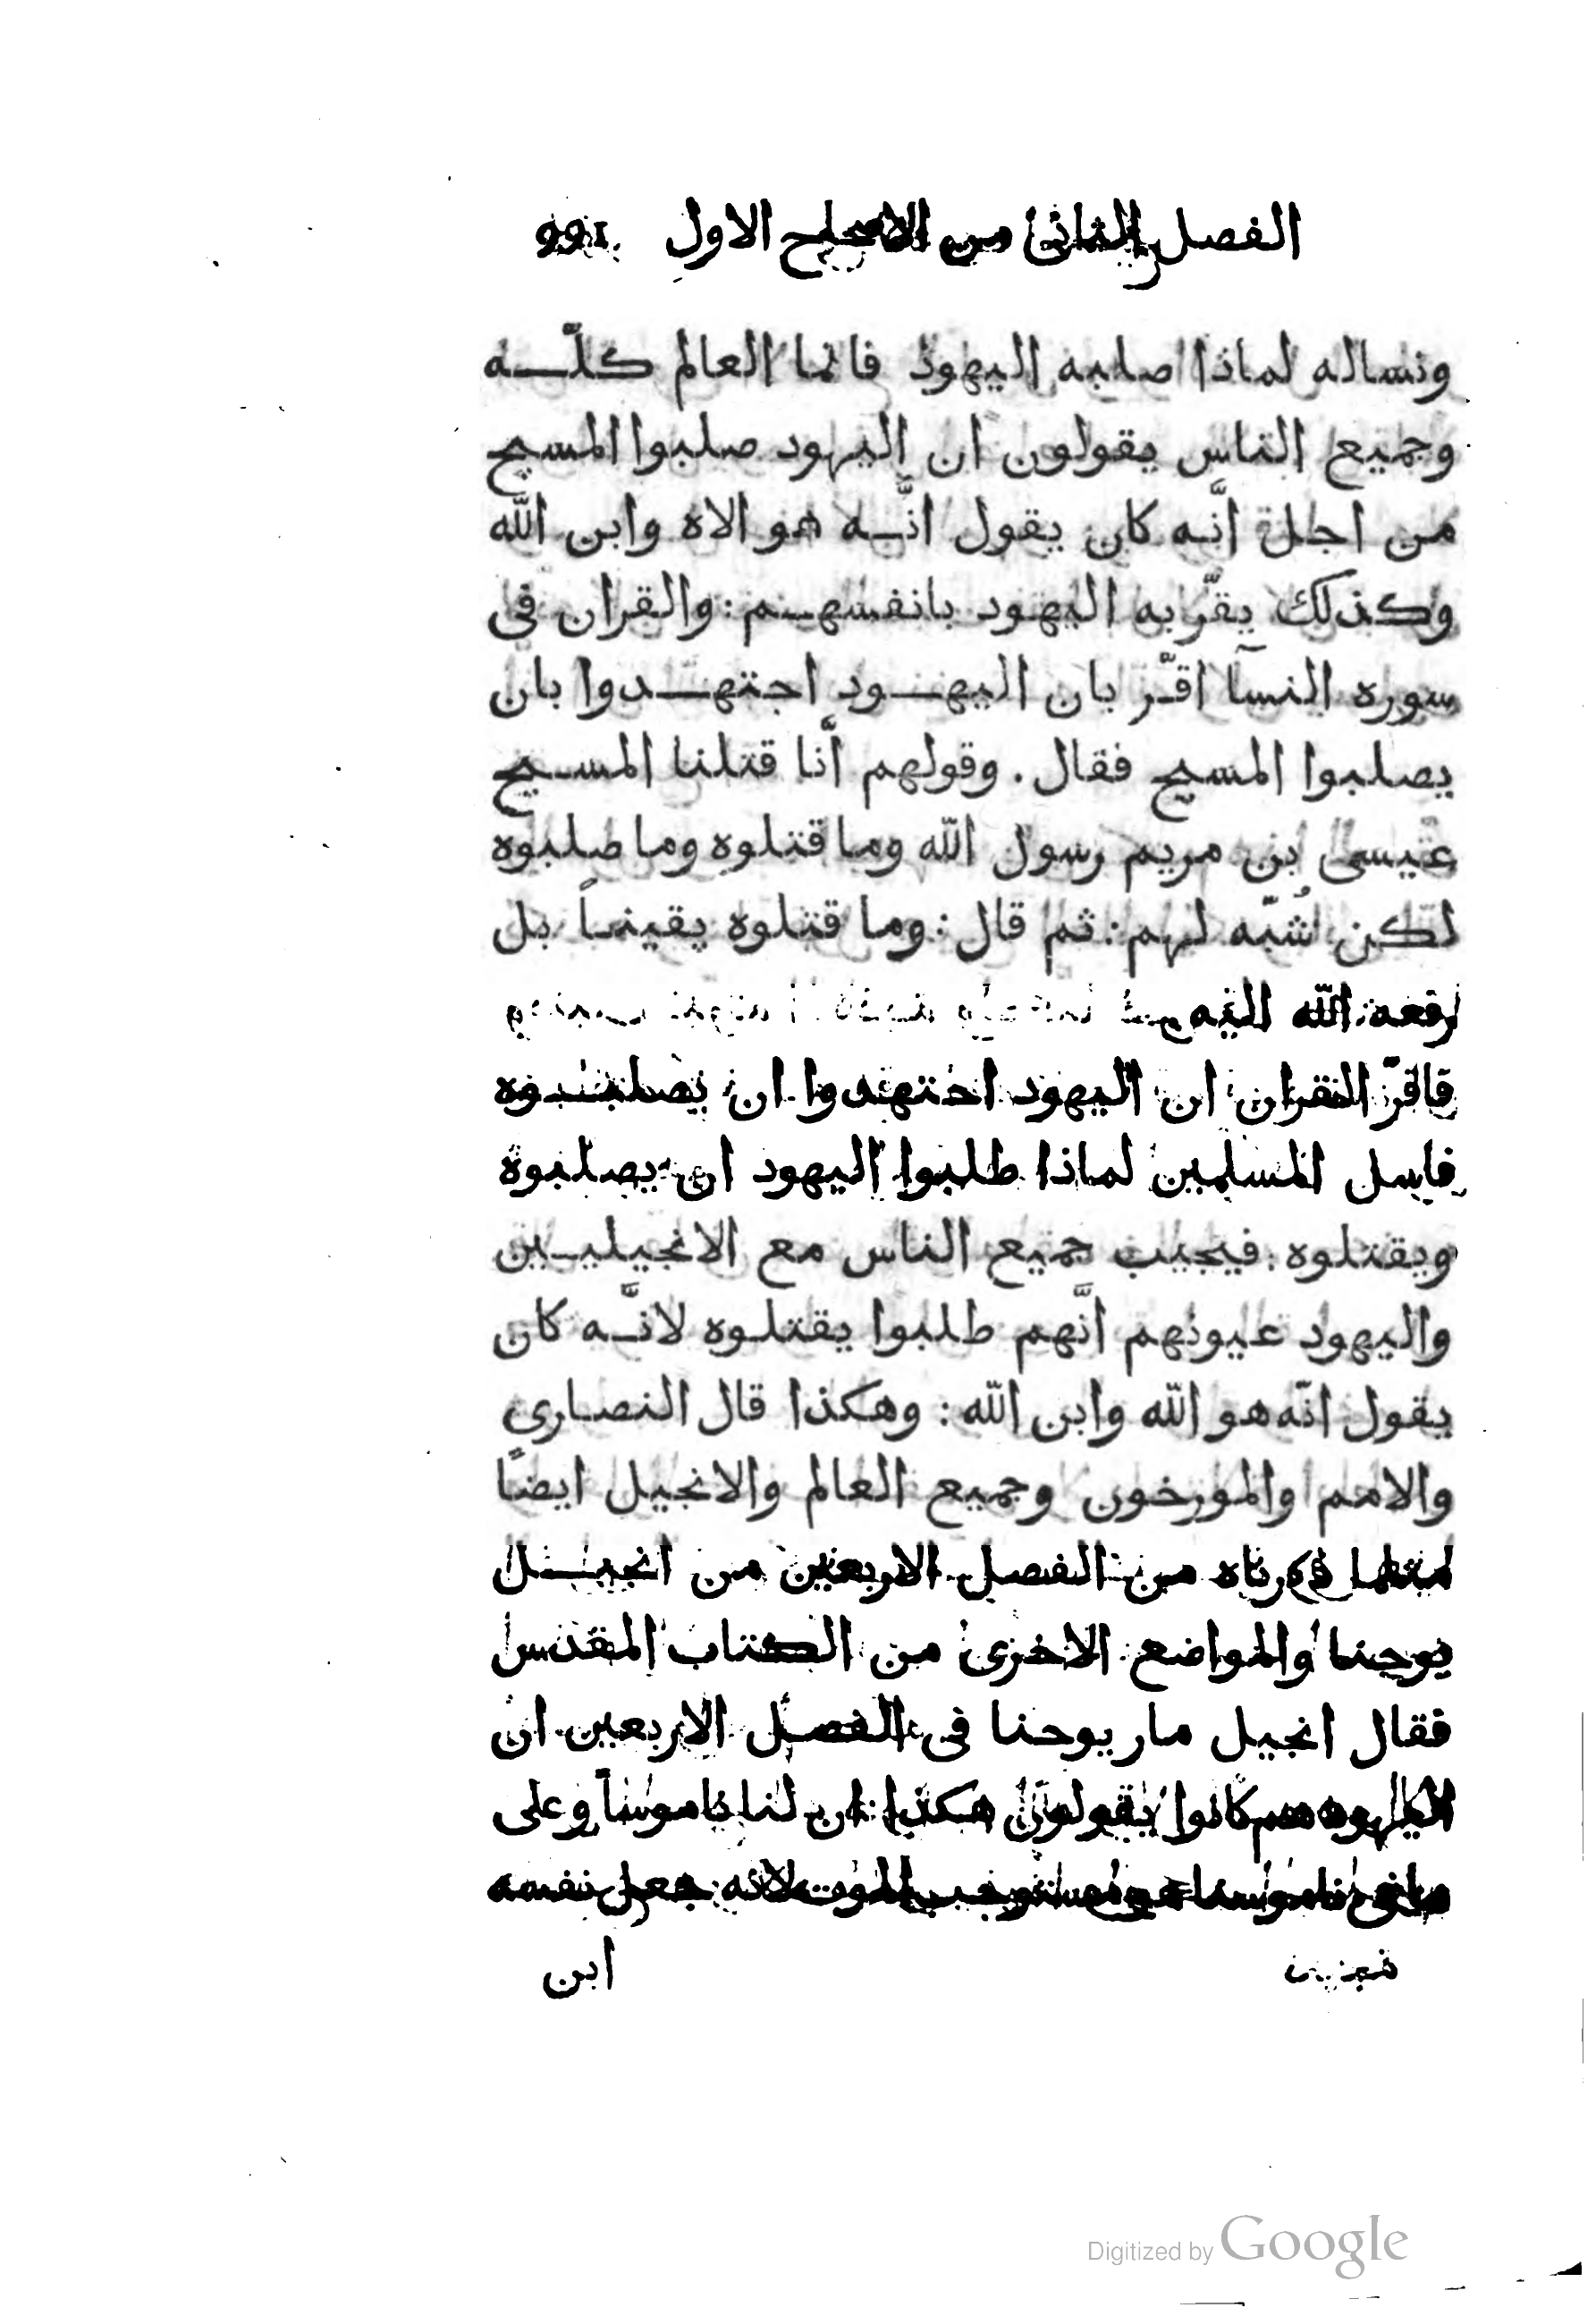 الفصل الثانى من الاصحاح الاول
ونساله لماذا صلبه اليهود فانما العالم كلّه
وجميع الناس يقولون ان اليهود صلبوا المسيح
من اجل انَّه كان يقول انَّه هو الاه وابن اللّه
وكذلك يقرّبه اليهود بانفسهم : والقران فى
سوره النسآ اقرّ بان اليهود اجتهدوا بان
يصلبوا المسيح فقال . وقولهم انَّا قتلنا المسيح
عيسى ابن مريم رسول اللّه وما قتلوه وما صلبوه
لكن شُبّه لهم : ثم قال : وما قتلوه يقيناً بل
رفعه اللّه اليه
فاقرّ القران ان اليهود اجتهدوا ان يصلبوه
فاسل المسلمين لماذا طلبوا اليهود ان يصلبوه
ويقتلوه : فيجيب جميع الناس مع الانجيليين
واليهود عيونهم انَّهم طلبوا يقتلوه لانَّه كان
يقول انّه هو اللّه وابن اللّه : وهكذا قال النصارى
والامم والمورخون وجميع العالم والانجيل ايضًا
مثلما ذكرناه من الفصل الاربعين من انجيل
يوحنا والمواضع الاخرى من الكتاب المقدس
فقال انجيل مار يوحنا فى الفصل الاربعين ان
اليهود هم كانوا يقولون هكذا : ان لنا ناموساً وعلى
ناموسنا هو مستوجب الموت لانه جعل نفسه
ابن
Digitized by Google